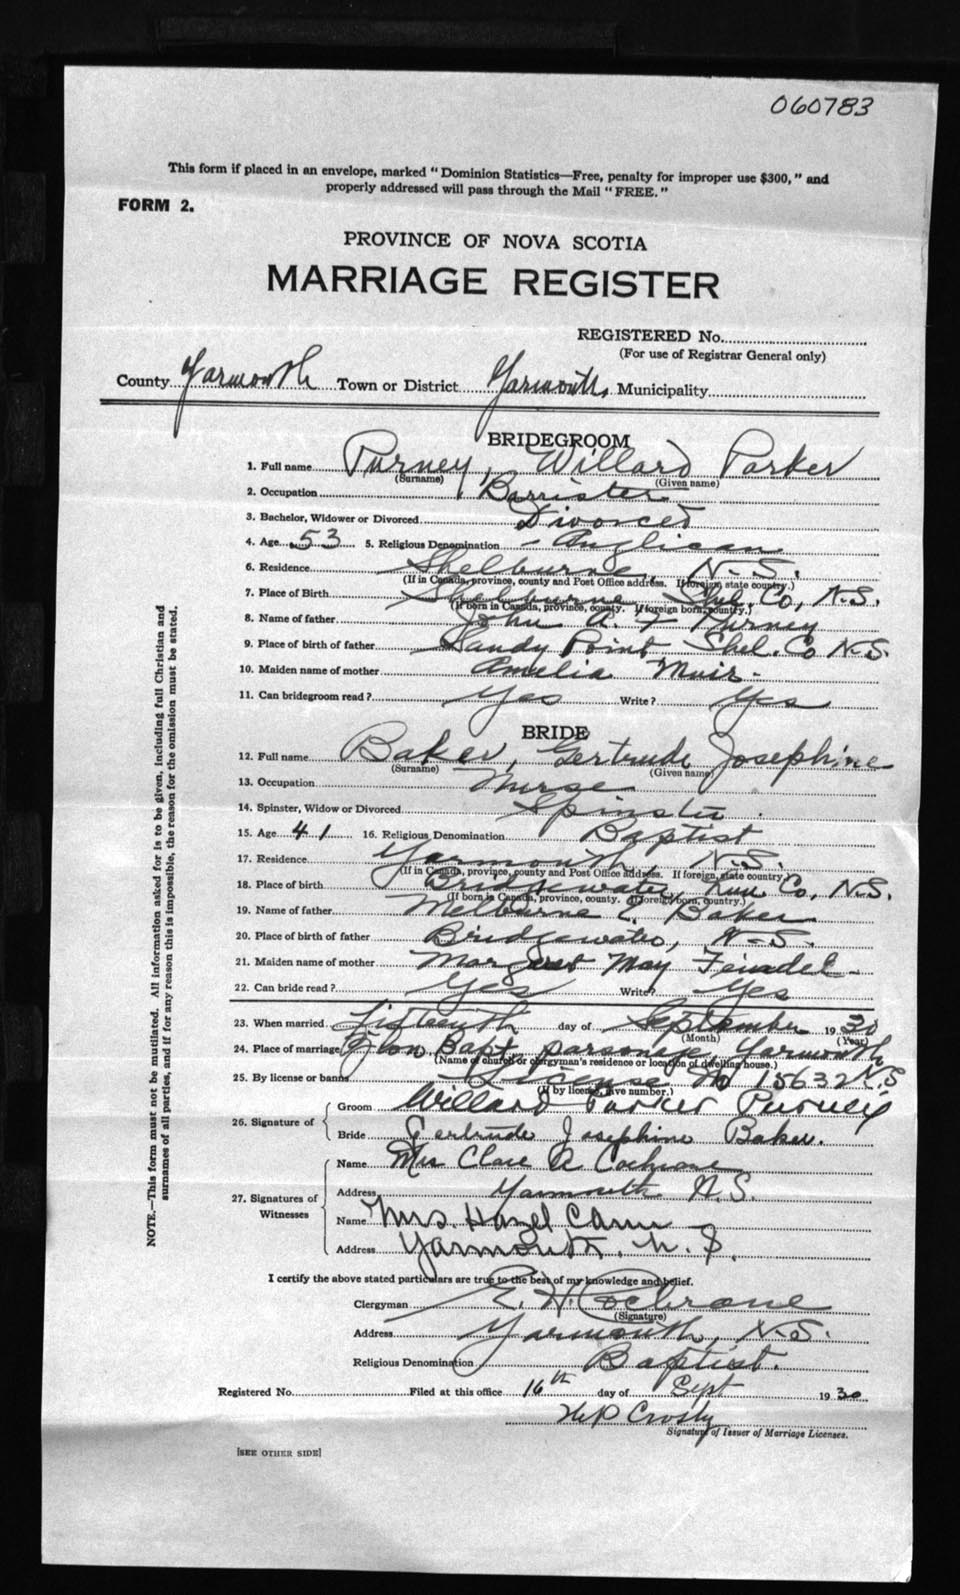 060783
This form if placed in an envelope, marked "Dominion Statistics—Free, penalty for improper use $300," and
properly addressed will pass through the Mail "FREE."
FORM 2.
PROVINCE OF NOVA SCOTIA
MARRIAGE REGISTER
REGISTERED No.
(For use of Registrar General only)
County Yarmouth Town or District Yarmouth Municipality
BRIDEGROOM
1. Full name Purney, Willard Parker
(Surname) (Given name)
2. Occupation Barrister
3. Bachelor, Widower or Divorced Divorced
4. Age 53 5. Religious Denomination - Anglican
6. Residence Shelburne, N.S.
(If in Canada, province, county and Post Office address. If foreign, state country.)
7. Place of Birth Shelburne Shel. Co, N.S.
(If born in Canada, province, county. If foreign born, country.)
8. Name of father John A. F Purney
9. Place of birth of father Sandy Point Shel. Co N.S.
10. Maiden name of mother Amelia Muir-
11. Can bridegroom read? Yes Write? Yes
BRIDE
12. Full name Baker, Gertrude Josephine
(Surname) (Given name)
13. Occupation Nurse
14. Spinster, Widow or Divorced Spinster.
15. Age 41 16. Religious Denomination Baptist
17. Residence Yarmouth, N.S.
(If in Canada, province, county and Post Office address. If foreign, state country
18. Place of birth Bridgewater, Lun. Co, N.S.
(If born in Canada, province, county. If foreign born, country.)
19. Name of father Melburne E. Baker
20. Place of birth of father Bridgewater, N.S.
21. Maiden name of mother Margaret May Feindel-
22. Can bride read? Yes Write? Yes
23. When married Fifteenth day of September 1930
(Month) (Year)
24. Place of marriage Zion Bapt. parsonage, Yarmouth,
(Name of church or clergyman's residence or location of dwelling house.)
25. By license or banns License No 15632 N.S
(If by license, give number.)
26. Signature of
Groom Willard Parker Purney
Bride Gertrude Josephine Baker.
27. Signatures of Witnesses
Name Mrs Clare A Cochrane
Address Yarmouth N.S.
Name Mrs. Hazel Cann
Address Yarmouth. N.S.
I certify the above stated particulars are true to the best of my knowledge and belief.
Clergyman E. H. Cochrane
(Signature)
Address Yarmouth, N.S.
Religious Denomination Baptist.
Registered No. Filed at this office 16th day of Sept 1930
Crosby
Signature of Issuer of Marriage Licenses.
[SEE OTHER SIDE]
NOTE.—This form must not be mutilated. All information asked for is to be given, including full Christian and
surnames of all parties, and if for any reason this is impossible, the reason for the omission must be stated.